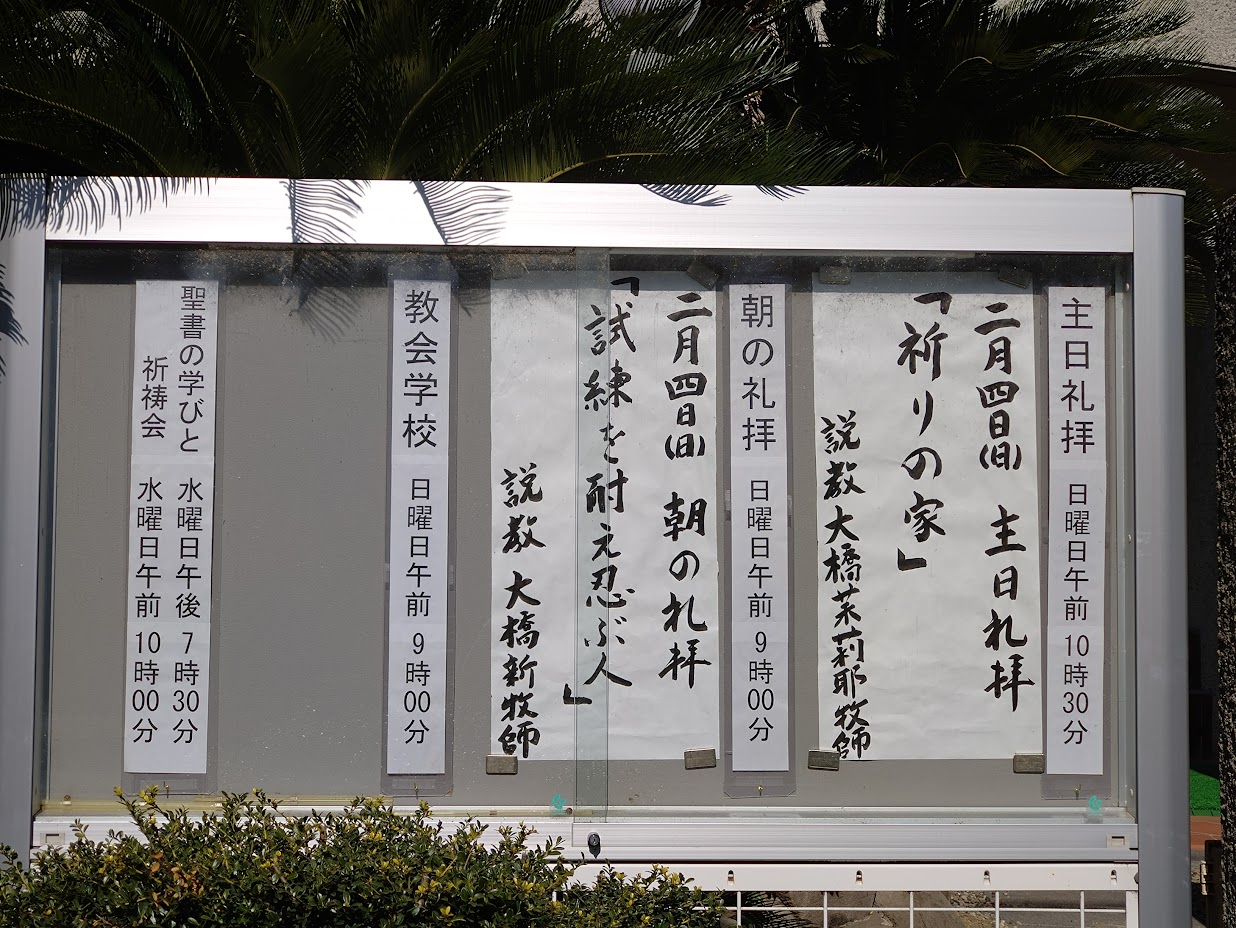 主日礼拝 日曜日午前 10時30分
二月四日(日) 主日礼拝
「祈りの家」
説教 大橋茉莉耶牧師
朝の礼拝 日曜日午前 9時00分
二月四日(日) 朝の礼拝
「試練を耐え忍ぶ人」
説教 大橋新牧師
教会学校 日曜日午前 9時00分
聖書の学びと 水曜日午後 7時30分
祈祷会 水曜日午前 10時00分